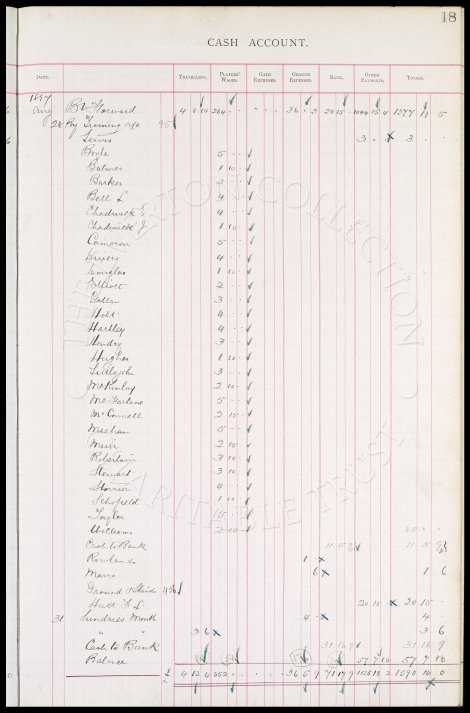 18
CASH ACCOUNT.
DATE. TRAVELLING. PLAYERS' WAGES. GATE EXPENSES. GROUND EXPENSES. BANK. OTHER PAYMENTS. TOTALS.
1897
Aug Bt Forward 4 8 10 264 36 3 2815 15 4 1377 19 5
28 By Training a/c 95
Lewis 3 3
Boyle 5
Balmer 1 10
Barker 3
Bell L 4
Chadwick E 4
Chadwick J 1 10
Cameron 5
Divers 4
Douglas 1 10
Elliott 2
Gillan 3
Holt 4
Hartley 4
Hendry 3
Hughes 1 10
Lillyjohn 3
McKinlay 2 10
McFarlane 5
McConnell 2 15
Meehan 5
Muir 2 10
Robertson 3 10
Steward 3 10
Storrier 4
Schofield 1 10
Taylor 5
Williams 2 10 88
Cash to Bank 11 5 9 11 5 9
Rowlands 1
Mears 6 1 6
Ground & Stands
Hall F. L. 20 15 20 15
31 Sundries Month 4 4
" " 3 6 3 6
Cash to Bank 31 16 9 31 16 9
Balance 57 7 10 57 7 10
£ 4 12 4 352 36 5 9 71 17 9 1125 18 2 1590 14 0
THE EVERTON COLLECTION
CHARITABLE TRUST